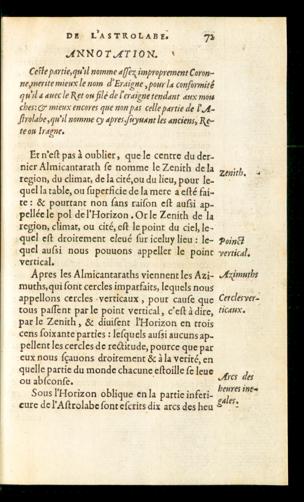 DE L'ASTROLABE. 72
ANNOTATION.
Ceste partie, qu'il nomme assez improprement Coron-
ne, merite mieux le nom d'Eraigne, pour la conformité
qu'il a auec le Ret ou filé de l'eraigne tendant aux mou
ches: & mieux encores que non pas celle partie de l'A-
strolabe, qu'il nomme cy apres, suyuant les anciens, Re-
te ou Iragne.
Et n'est pas à oublier, que le centre du der-
nier Almicantarath se nomme le Zenith de la
region, du climat, de la cité, ou du lieu, pour le-
quel la table, ou superficie de la mere a esté fai-
te: & pourtant non sans raison est aussi ap-
pellée le pol de l'Horizon. Or le Zenith de la
region, climat, ou cité, est le point du ciel, le-
quel est droitement eleué sur iceluy lieu: le-
quel aussi nous pouuons appeller le point
vertical.
zenith.
Poinct
vertical.
Apres les Almicantaraths viennent les Azi-
muths, qui sont cercles imparfaits, lequels nous
appellons cercles verticaux, pour cause que
tous passent par le point vertical, c'est à dire,
par le Zenith, & diuisent l'Horizon en trois
cens soixante parties: lesquels aussi aucuns ap-
pellent les cercles de rectitude, pource que par
eux nous sçauons droitement & à la verité, en
quelle partie du monde chacune estoille se leue
ou absconse.
Azimuths
Cercles ver-
ticaux.
Sous l'Horizon oblique en la partie inferi-
eure de l'Astrolabe sont escrits dix arcs des heu
Arcs des
heures ine-
gales.